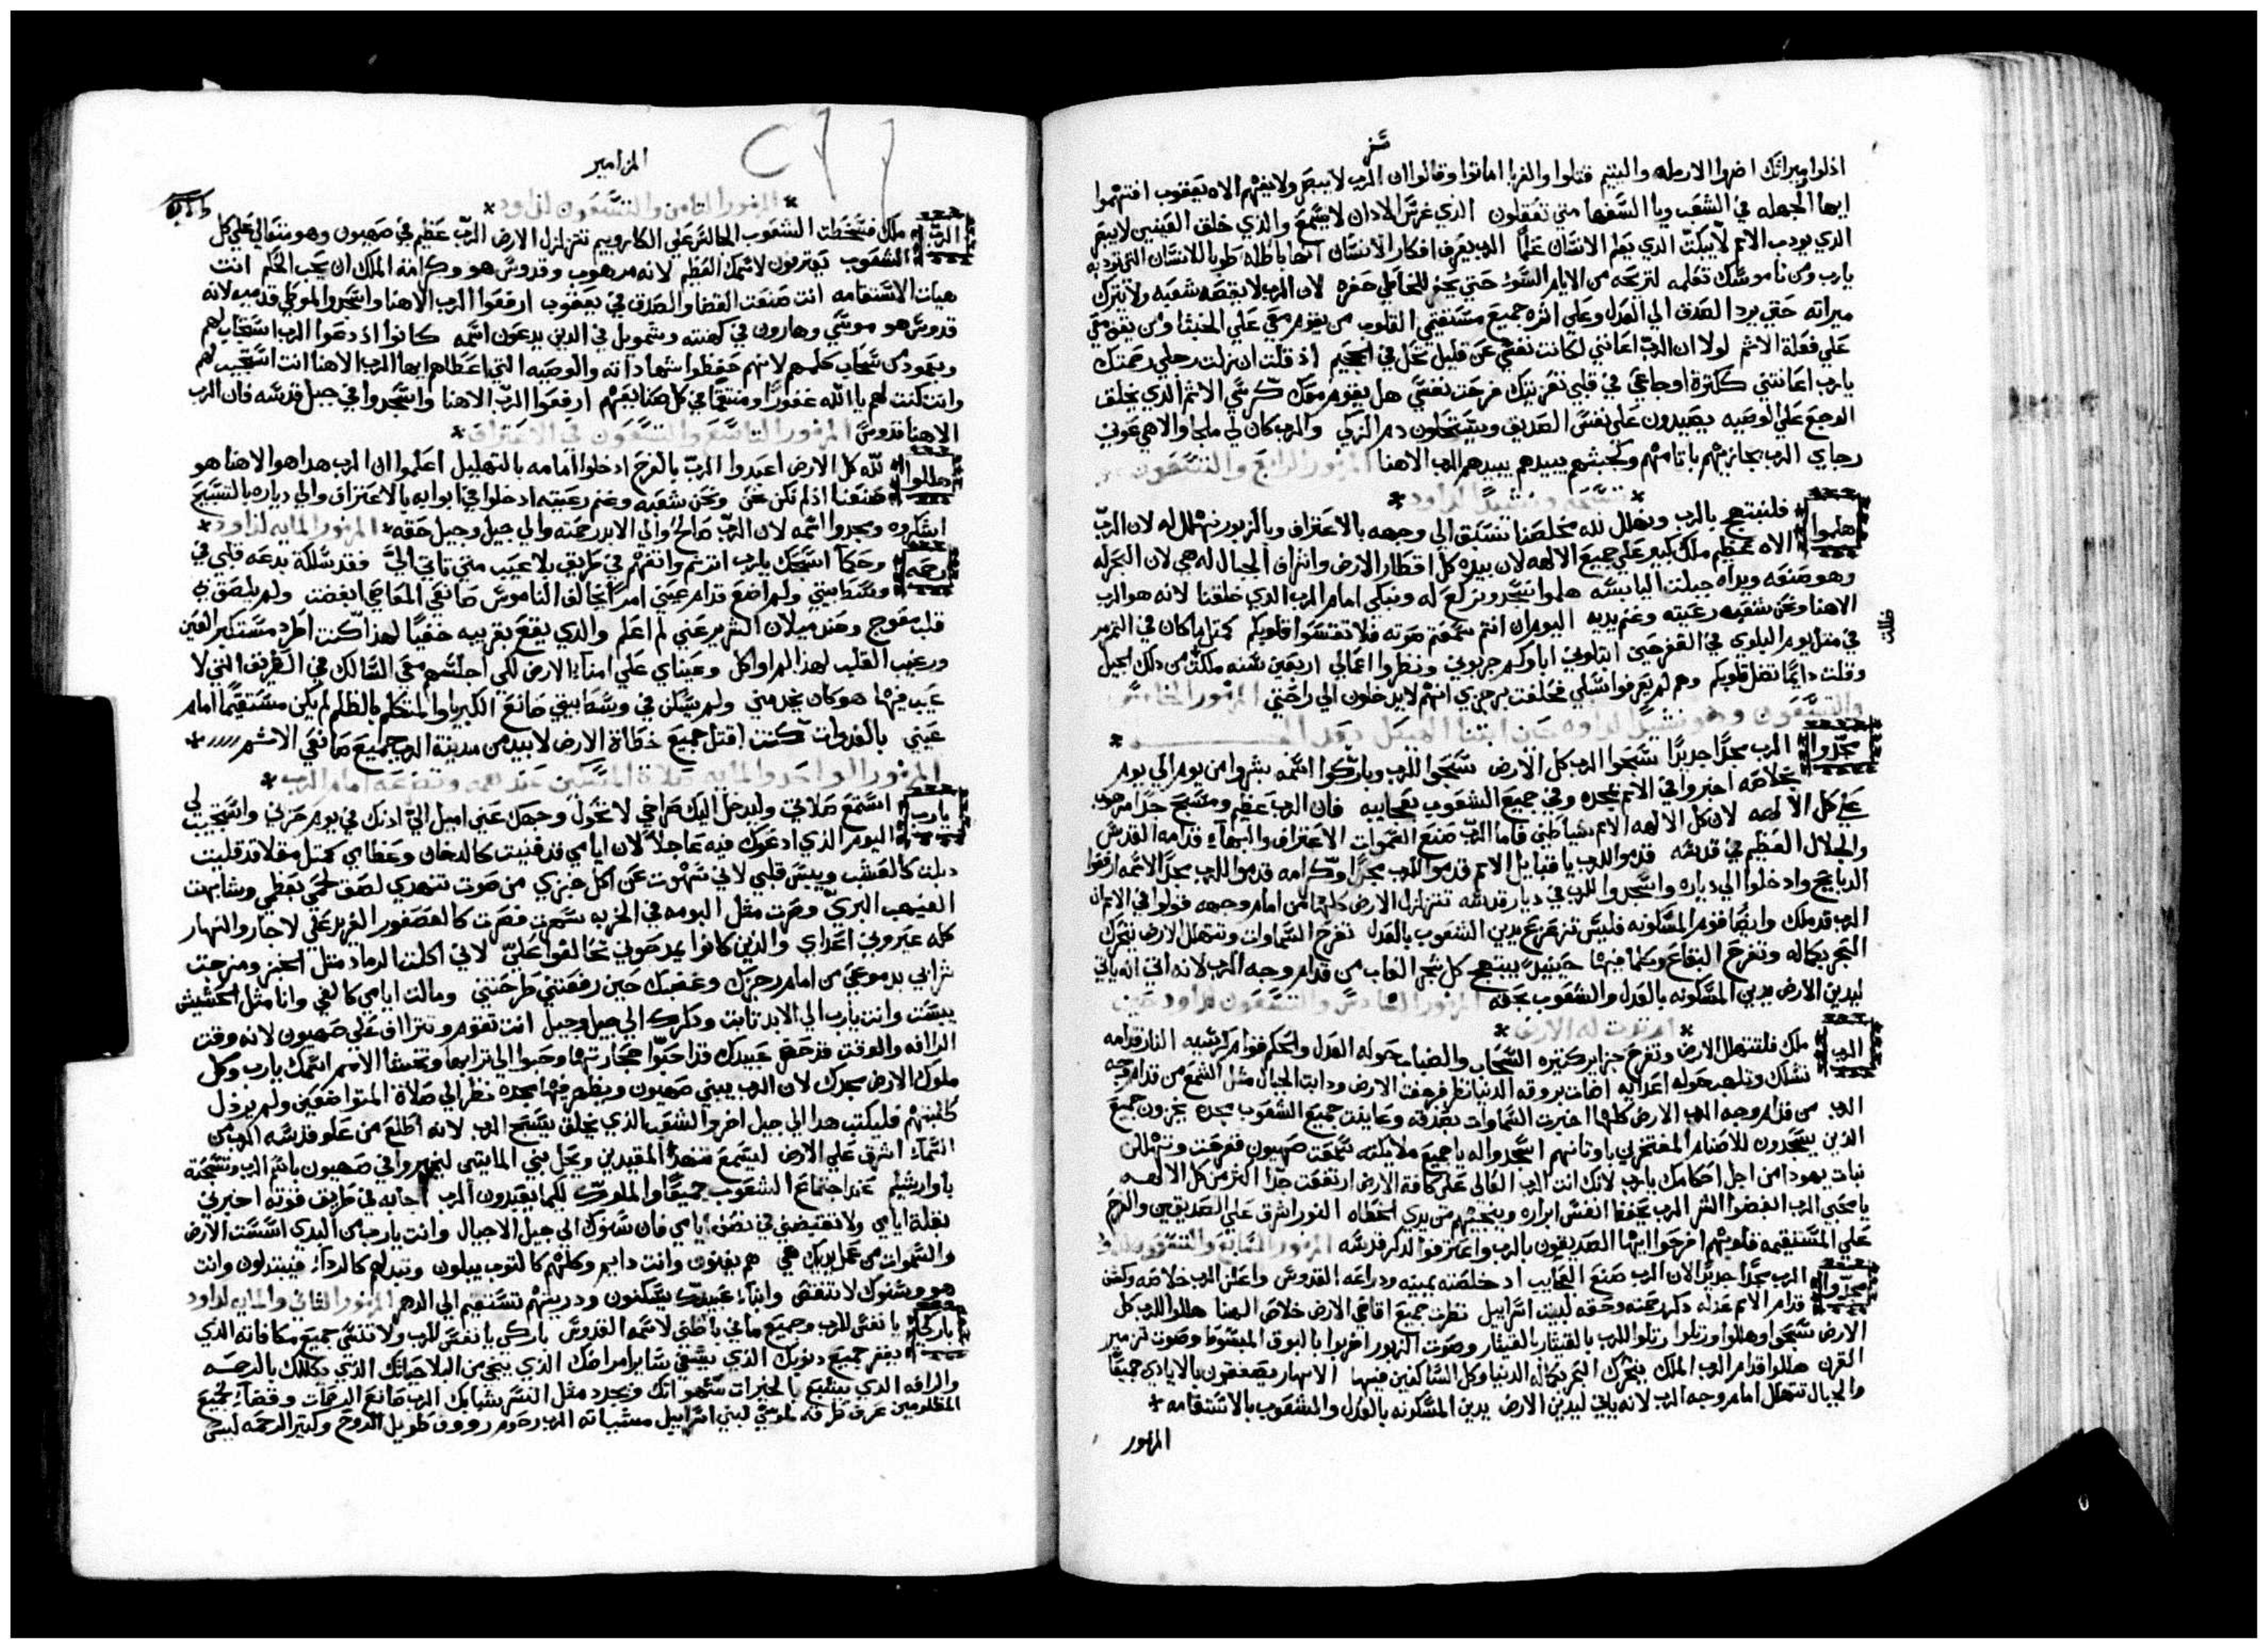 اذلوا ميراثك اضروا الارمله واليتيم قتلوا والغربا اماتوا وقالوا ان الرب لا يبصر ولا يفهم الاه يعقوب افتهموا
ايها الجهله في الشعب ويا السفها متي تعقلون الذي غرس الاذان لا يسمع والذي خلق العينين لا يبصر
الذي يودب الامم لا يبكت الذي يعلم الانسان علما الرب يعرف افكار الانسان انها باطله طوبا للانسان الذي تودبه
يارب ومن ناموسك تعلمه لتريحه من الايام السوء حتي يحفر للخاطي حفره لان الرب لا يقصه شعبه ولا يترك
ميراثه حتي يرد الصدق الي العدل وعلي اثره جميع مستقيمي القلوب من يقوم معي علي الخبثا ومن يقف معي
علي فعلة الاثم لولا ان الرب اعانني لكانت نفسي عن قليل تحل في الجحيم اذ قلت ان زلت رجلي رحمتك
يارب اعانتني ككثرة اوجاعي في قلبي تعزيتك فرحت نفسي هل يقوم معك كرسي الاثم الذي يخلق
الوجع علي الوصيه يصيدون علي نفس الصديق ويستحلون دم الزكي والرب كان لي ملجا والاهي عوني
رجاي الرب يجازيهم باثامهم وكخبثهم يبيدهم يبيدهم الرب الاهنا المزمور الرابع والتسعون
تسبحه ونشيد لداود
هلموا فلنبتهج بالرب ونهلل لله مخلصنا نسبق الي وجهه بالاعتراف وبالزبور نهلل له لان الرب
الاه عظيم ملك كبير علي جميع الالهه لان بيده كل اقطار الارض واشراف الجبال له هي لان البحر له
وهو صنعه ويداه جبلت اليابسه هلموا نسجد ونركع له ونبكي امام الرب الذي خلقنا لانه هو الرب
الاهنا ونحن شعب رعيته وغنم يديه اليوم ان انتم سمعتم صوته فلا تقسوا قلوبكم كمثل ما كان في التمرمر
في مثل يوم البلوي في القفر حين ابتلوني اباوكم جربوني ونظروا اعمالي اربعين سنه مللت من ذلك الجيل
وقلت دايما تضل قلوبكم وهم لم يعرفوا سبلي فحلفت برجزي انهم لا يدخلون الي راحتي المزمور الخامس
والتسعون وهو نشيد لداوود حين ابتنا الهيكل بعد
مجدوا الرب مجدا جديدا سبحوا الرب كل الارض سبحوا للرب وباركوا اسمه بشروا من يوم الي يوم
بخلاصه اخبروا في الامم بمجده وفي جميع الشعوب بعجايبه فان الرب عظيم ومسبح جدا مرهوب
علي كل الالهه لان كل الالهه الامم شياطين فاما الرب صنع السموات الاعتراف والبهاء قدامه القدس
والجلال العظيم في قدسه قدموا للرب يا قبايل الامم قدموا للرب مجدا وكرامه قدموا للرب مجدا لاسمه ارفعوا
الذبايح وادخلوا الي دياره واسجدوا للرب في ديار قدسه تتزلزل الارض كلها من امام وجهه قولوا في الامم ان
الرب قد ملك وايضا قوم المسكونه فليس تتزعزع يدين الشعوب بالعدل تفرح السماوات وتتهلل الارض يتحرك
البحر بكماله وتفرح البقاع وكلما فيها حينيذ يبتهج كل شجر الغاب من قدام وجه الرب لانه اتي انه ياتي
ليدين الارض يدين المسكونه بالعدل والشعوب بحقه المزمور السادس والتسعون لداود حين
له الارض
الرب ملك فلتتهلل الارض وتفرح جزاير كثيره السحاب والضباب حوله العدل والحكم قوام كرسيه النار قدامه
تسلك وتلهب حوله اعدايه اضات بروقه الدنيا نظر فرجفت الارض وذابت الجبال مثل الشمع من قدام وجه
الرب من قدام وجه الرب الارض كلها اخبرت السماوات بصدقه وعاينت جميع الشعوب بمجده يخزون جميع
الذين يسجدون للاصنام المفتخرين باوثانهم اسجدوا له يا جميع ملايكته سمعت صهيون ففرحت وتهللن
بنات يهودا من اجل احكامك يارب لانك انت الرب العالي علي كافة الارض ارتفعت جدا اكثر من كل الالهه
يا محبي الرب ابغضوا الشر الرب يحفظ انفس ابراره وينجيهم من يدي الخطاه النور اشرق علي الصديقين والفرح
علي المستقيمه قلوبهم افرحوا ايها الصديقون بالرب واعترفوا لذكر قدسه
مجدوا الرب مجدا جديدا لان الرب صنع العجايب اد خلصته يمينه ودراعه القدوس واعلن الرب خلاصه وكشف
قدام الامم عدله ذكر رحمته وحقه لبيت اسراييل نظرت جميع اقاصي الارض خلاص الهنا هللوا للرب كل
الارض سبحوا وهللوا ورتلوا رتلوا للرب بالقيثار بالقيثار وصوت الزبور اضربوا بالبوق المبسوط وصوت تزمير
القرن هللوا قدام الرب الملك يتحرك البحر بكماله الدنيا وكل الساكنين فيها الانهار يصفقون بالايادي جميعا
والجبال تتهلل امام وجه الرب لانه ياتي ليدين الارض يدين المسكونه بالعدل والشعوب بالاستقامه
المزمور
المزامير
المزمور الثامن والتسعون لداود
الرب ملك فسخطت الشعوب الجالس علي الكاروبيم تتزلزل الارض الرب عظيم في صهيون وهو متعالي علي كل
الشعوب يعترفون لاسمك العظيم لانه مرهوب وقدوس هو وكرامة الملك ان يحب الحكم انت
هيات الاستقامه انت صنعت القضا والصدق في يعقوب ارفعوا الرب الاهنا واسجدوا لموطي قدميه لانه
قدوس هو موسي وهارون في كهنته وشمويل في الذين يدعون اسمه كانوا اذ دعوا الرب استجاب لهم
وبعمود سحاب كلمهم لانهم حفظوا شهاداته والوصيه التي اعطاهم ايها الرب الاهنا انت استجيب لهم
وانت كنت لهم يا الله غفورا ومنتقما في كل صنايعهم ارفعوا الرب الاهنا واسجدوا في جبل قدسه فان الرب
الاهنا قدوس المزمور التاسع والتسعون في الاعتراف
هللوا لله كل الارض اعبدوا الرب بالفرح ادخلوا امامه بالتهليل اعلموا ان الرب هذا هو الاهنا هو
صنعنا اذ لم نكن نحن ونحن شعبه وغنم رعيته ادخلوا في ابوابه بالاعتراف والي دياره بالتسبيح
اشكروه ومجدوا اسمه لان الرب صالح والي الابد رحمته والي جيل وجيل حقه المزمور المايه لداود
رحمه وحكما اسبحك يارب ارتل واتفهم في طريق بلا عيب متي تاتي الي فقد سلكت بدعه قلبي في
وسط بيتي ولم اضع قدام عيني امرا يخالف الناموس صانعي المعاصي ابغضت ولم يلصق بي
قلب معوج وعند ميلان الشرير عني لم اعلم والذي يقع بقريبه خفيا لهذا كنت اطرد مستكبر العين
ورغيب القلب لهذا لم اواكل وعيناي علي امناء الارض لكي اجلسهم معي السالك في الطريق التي لا
عيب فيها هو كان يخدمني ولم يسكن في وسط بيتي صانع الكبريا والمتكلم بالظلم لم يكن مستقيما امام
عيني بالغدوات كنت اقتل جميع خطاة الارض لابيد من مدينة الرب جميع صانعي الاثم
المزمور الواحد والمايه صلاة المسكين وتضرعه امام الرب
يارب استمع صلاتي وليدخل اليك صراخي لا تحول وجهك عني اميل الي اذنك في يوم حزني واستجيب لي
اليوم الذي ادعوك فيه عاجلا لان ايامي قد فنيت كالدخان وعظامي كمثل مقلا قد قليت
ذبلت كالعشب ويبس قلبي لاني سهوت عن اكل خبزي من صوت تنهدي لصق لحمي بعظمي وشابهت
البري وصرت مثل البومه في الخربه سهرت فصرت كالعصفور الفريد علي لاجار والنهار
كله عيروني اعداي والذين كانوا يمدحوني تحالفوا علي لاني اكلت الرماد مثل الخبز ومزجت
شرابي بدموعي من امام رجزك وغضبك حين رفعتني طرحتني ومالت ايامي كالفي وانا مثل الحشيش
يبست وانت يارب الي الابد ثابت وذكرك الي جيل وجيل انت تقوم وتتراف علي صهيون لانه وقت
الرافه والوقت قد حضر عبيدك قد احبوا حجارتها وحنوا الي ترابها وتخشا الامم اسمك يارب وكل
ملوك الارض مجدك لان الرب يبني صهيون ويظهر فيها مجده نظر الي صلاة المتواضعين ولم يرذل
طلبتهم فليكتب هذا الي جيل اخر والشعب الذي يخلق يسبح الرب لانه اطلع من علو قدسه الرب من
السماء اشرق علي الارض ليسمع تنهد المقيدين ويحل بني المايتين ليخبروا في صهيون باسم الرب وتسبحته
باورشليم عند اجتماع الشعوب جميعا والملوك لكيما يعبدون الرب اجابه في طريق قوته اخبرني
بقلة ايامي ولا تقبضني في نصف ايامي فان سنوك الي جيل الاجيال وانت يارب من البدي اسست الارض
والسموات من عمل يديك هي هم يفنون وانت دايم وكلهم كالثوب يبلون وتبدلهم كالرداء فيتبدلون وانت
هو وسنوك لا تنقص وابناء عبيدك يسكنون وذريتهم تستقيم الي الدهر المزمور الثاني والمايه لداود
باركي يا نفسي للرب وجميع ما في باطني لاسمه القدوس باركي يا نفسي للرب ولا تنسي جميع مكافاته الذي
يغفر جميع ذنوبك الذي يشفي ساير امراضك الذي ينجي من البلا حياتك الذي يكللك بالرحمه
والرافه الذي يشبع بالخيرات شهواتك ويجدد مثل النسر شبابك الرب صانع الرحمات وقضاء لجميع
المظلومين عرف طرقه لموسي لبني اسراييل مشياته الرب رحوم رووف طويل الروح وكثير الرحمه ليس